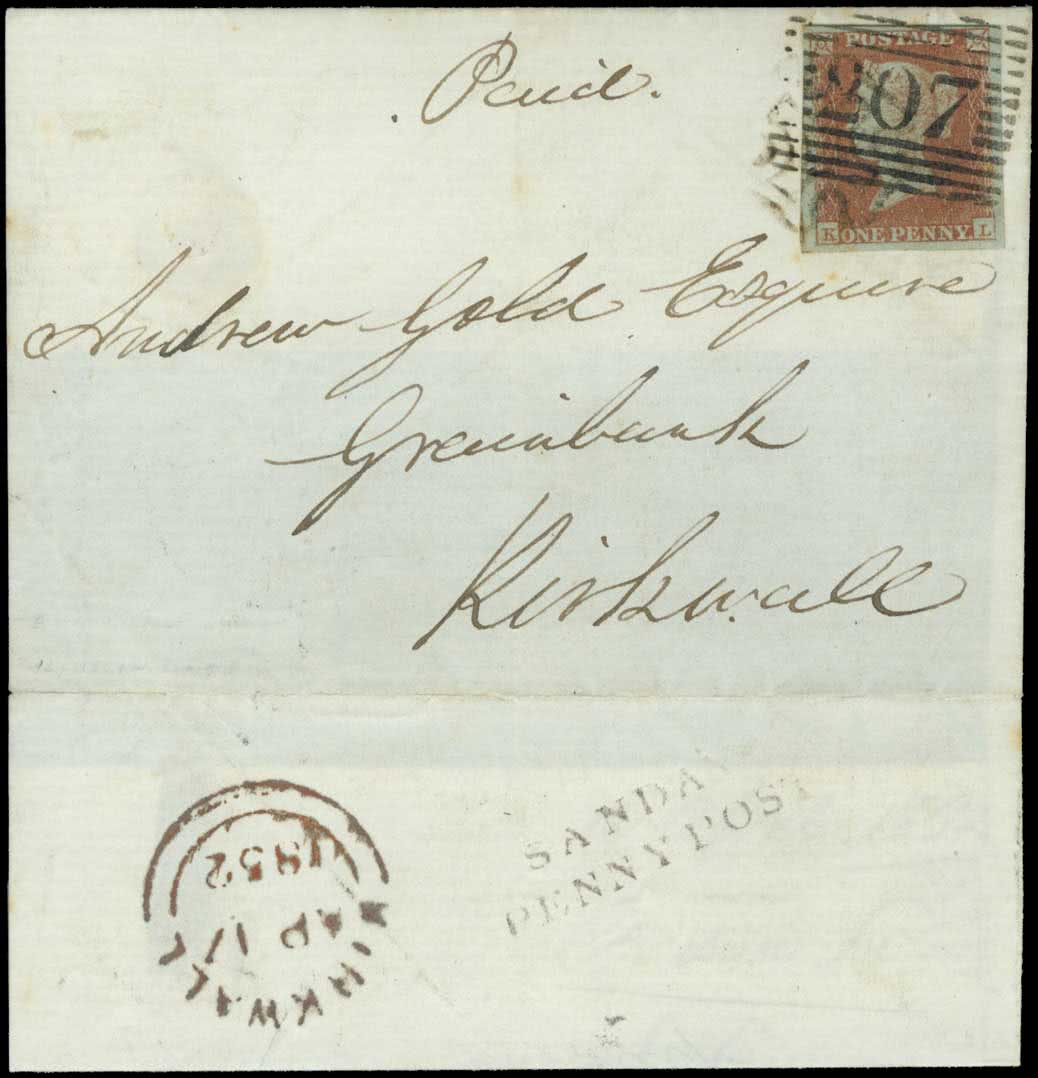 . Paid.
POSTAGE
207
K ONE PENNY L
Andrew Gold Esquire
Greenbank
Kirkwall
SANDAY
PENNY POST
KIRKWALL
AP 17
1852